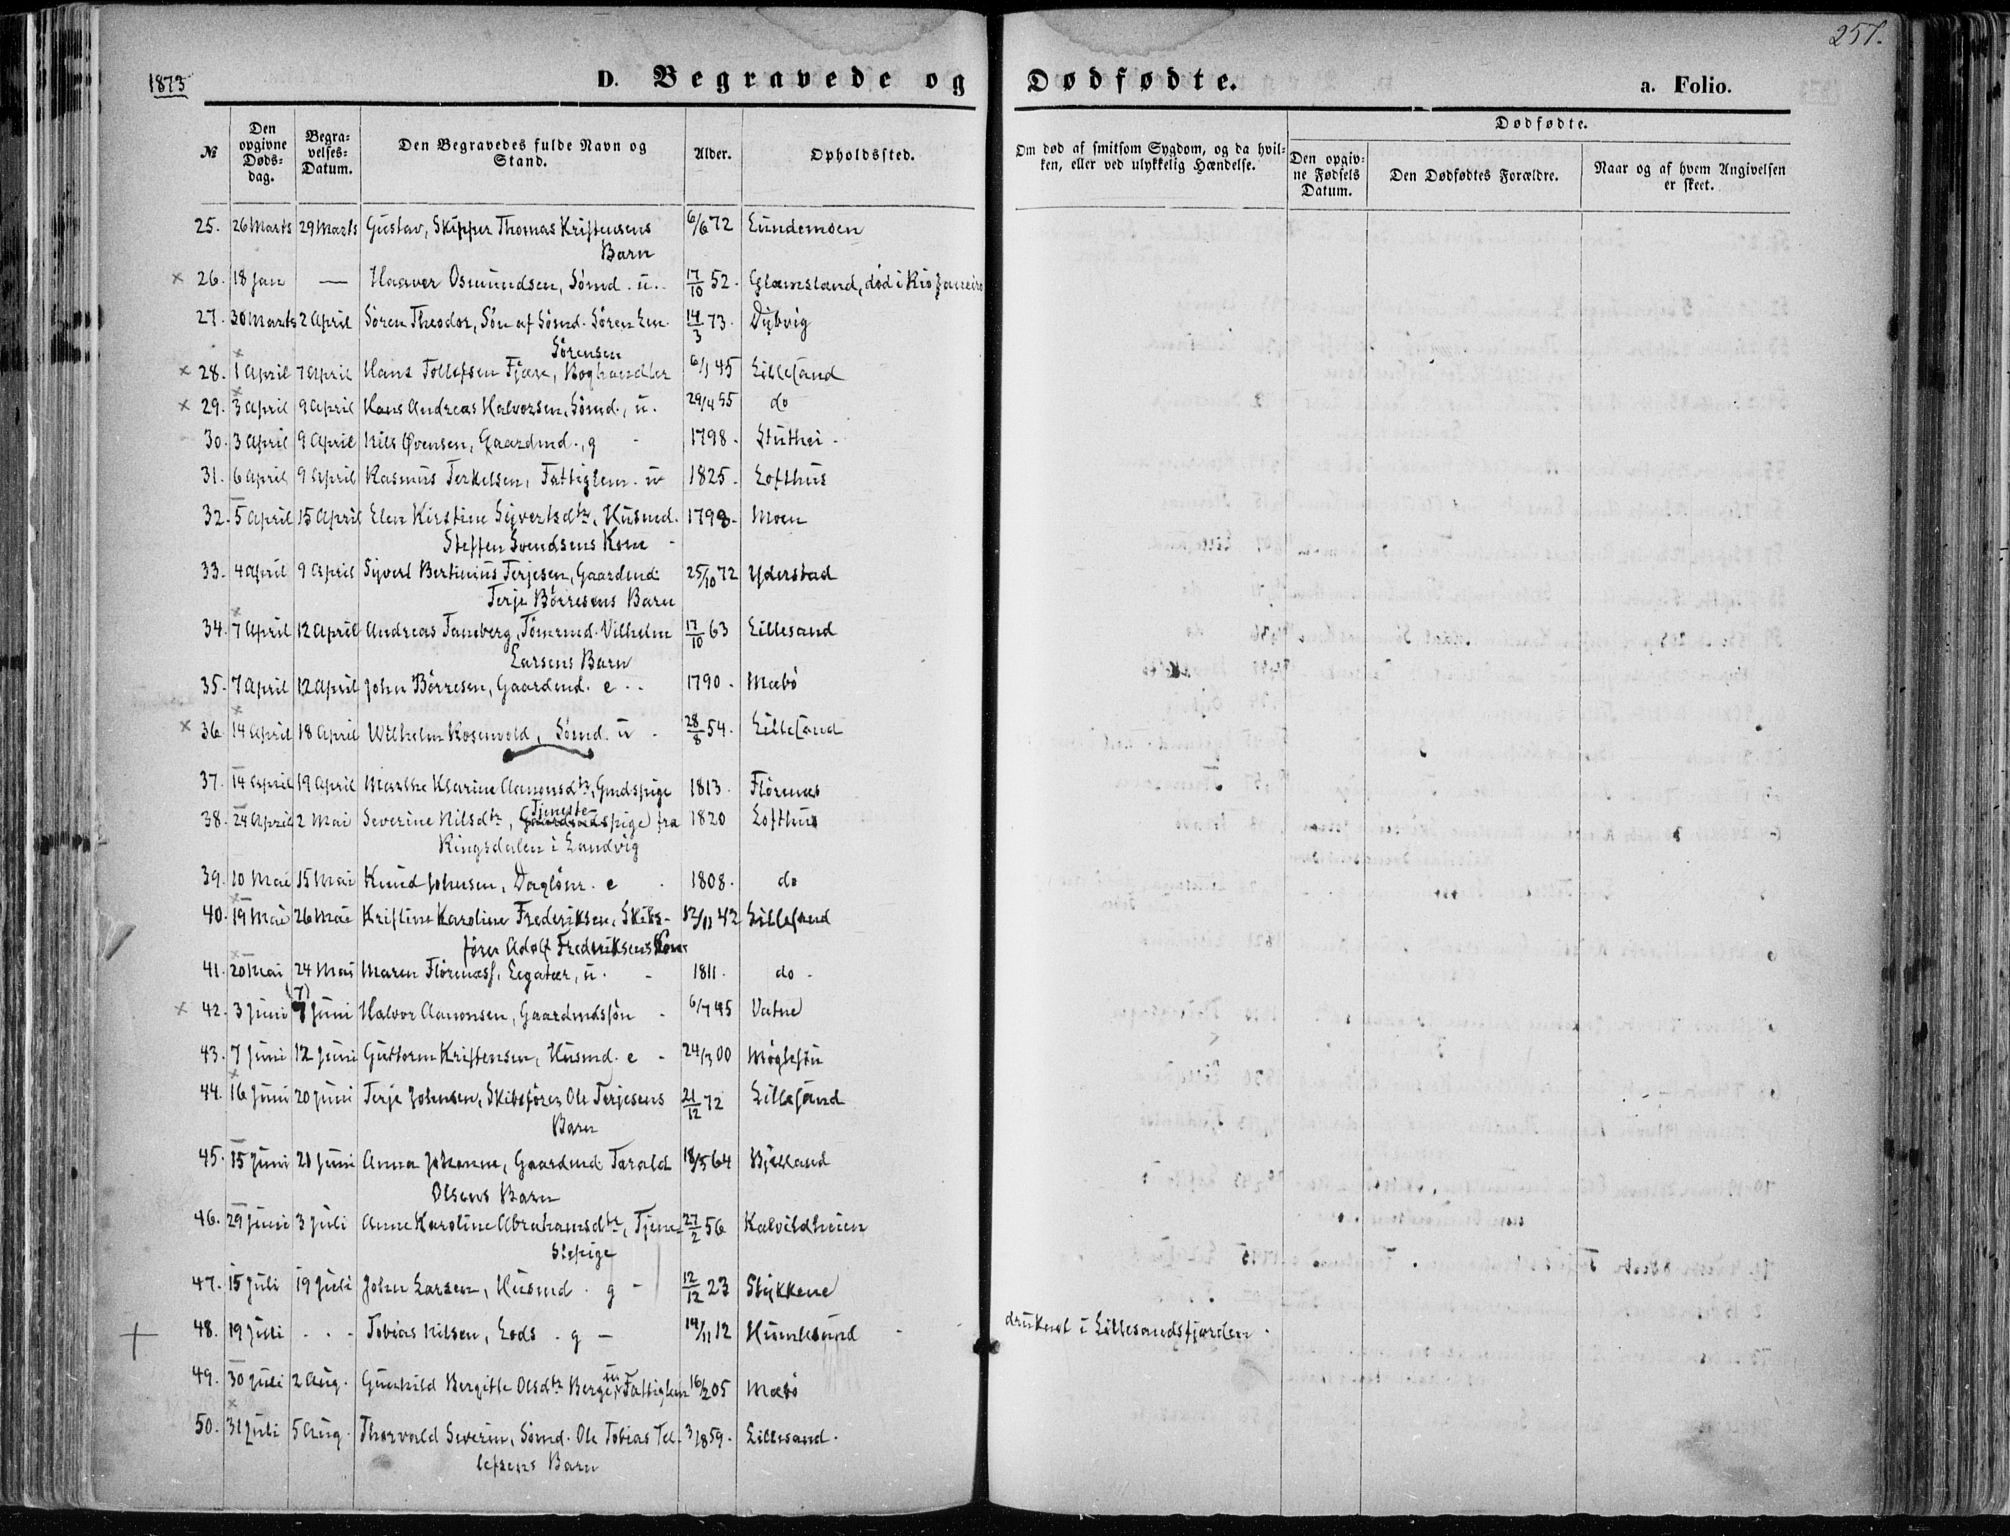 257.
1873
D. Begravede og Dødfødte.
a. Folio.
№
Den opgivne Døds-dag.
Begra-velses-Datum.
Den Begravedes fulde Navn og Stand.
Alder.
Opholdssted.
Om død af smitsom Sygdom, og da hvil-ken, eller ved ulykkelig Hændelse.
Dødfødte.
Den opgiv-ne Fødsels Datum.
Den Dødfødtes Forældre.
Naar og af hvem Angivelsen er skeet.
25. 26 Marts 29 Marts Gustav, Skipper Thomas Kristensens 6/6 72 Lundemoen
Barn
× 26. 18 Jan — Haaver Osmundsen, Sømd. u. 17/10 52. Glamsland, død i Rio Janeiro
27. 30 Marts 2 April Søren Theodor, Søn af Sømd. Søren Em. 14/3 73. Dybvig
Sørensen
× 28. 1 April 7 April Hans Tollefsen Fjære, Boghandler 6/1 45 Lillesand
× 29. 3 April 9 April Hans Andreas Halvorsen, Sømd., u. 29/4 55 do
30. 3 April 9 April Nils Øvensen, Gaardmd., g - 1798. Stuthei.
31. 6 April 9 April Rasmus Terkelsen, Fattiglem. u 1825. Lofthus
32. 5 April 15 April Elen Kirstine Syvertsdtr, Husmd. 1798. Moen
Steffen Svendsens Kone -
33. 4 April 9 April Syvert Bertinius Terjesen, Gaardmd. 25/10 72 Yderstad
Terje Børresens Barn
34. 7 April 12 April Andreas Faneberg, Tømrmd. Vilhelm 17/10 63 Lillesand
Larsens Barn
35. 7 April 12 April John Børresen, Gaardmd. e - 1790. Mæbø
× 36 14 April 18 April Wilhelm Rosenvold, Sømd. u. 28/8 54. Lillesand
37. 14 April 19 April Marthe Marine Aanonsdtr, Gmdspige 1813. Florenæs
38. 24 April 2 Mai Severine Nilsdtr, Tjenestepige fra 1820 Lofthus
Ringsdalen i Landvig
39. 10 Mai 15 Mai Knud Johnsen, Dagløn. e 1808. do
40. 19 Mai 26 Mai Kristine Karoline Frederiksen, Skibs- 12/11 42 Lillesand
fører Adolf Frederiksens Kone
41. 20 Mai 24 Mai Maren Florenæss, Legatær, u. - 1811. do -
(7)
× 42. 3 Juni 7 Juni Halvor Aanonsen, Gaardmdssøn - 6/7 45 Vatne
43. 7 Juni 12 Juni Guttorm Kristensen, Husmd. e - 24/3 00 Møglestu
44. 16 Juni 20 Juni Terje Johnsen, Skibsfører Ole Terjesens 21/12 72 Lillesand
Barn
45. 15 Juni 21 Juni Anna Johanne, Gaardmd Tarald 18/5 64 Bjelland
Olsens Barn
46. 29 Juni 3 Juli Anne Karoline Abrahamsdtr, Tjene- 27/2 56 Kalvildheien
stepige
47. 15 Juli 19 Juli John Larsen, Husmd. g - 12/12 23 Stykkene
48. 19 Juli - - Tobias Nilsen, Lods. g — 14/11 12 Humlesund - druknet i Lillesandsfjorden.
49. 30 Juli 2 Aug. Gunhild Bergitte Olsdtr Berge, u Fattiglem 16/2 05 Mæbø
50. 31 Juli 5 Aug. Thorvald Severin, Sømd. Ole Tobias Tel- 3/8 59. Lillesand.
lefsens Barn